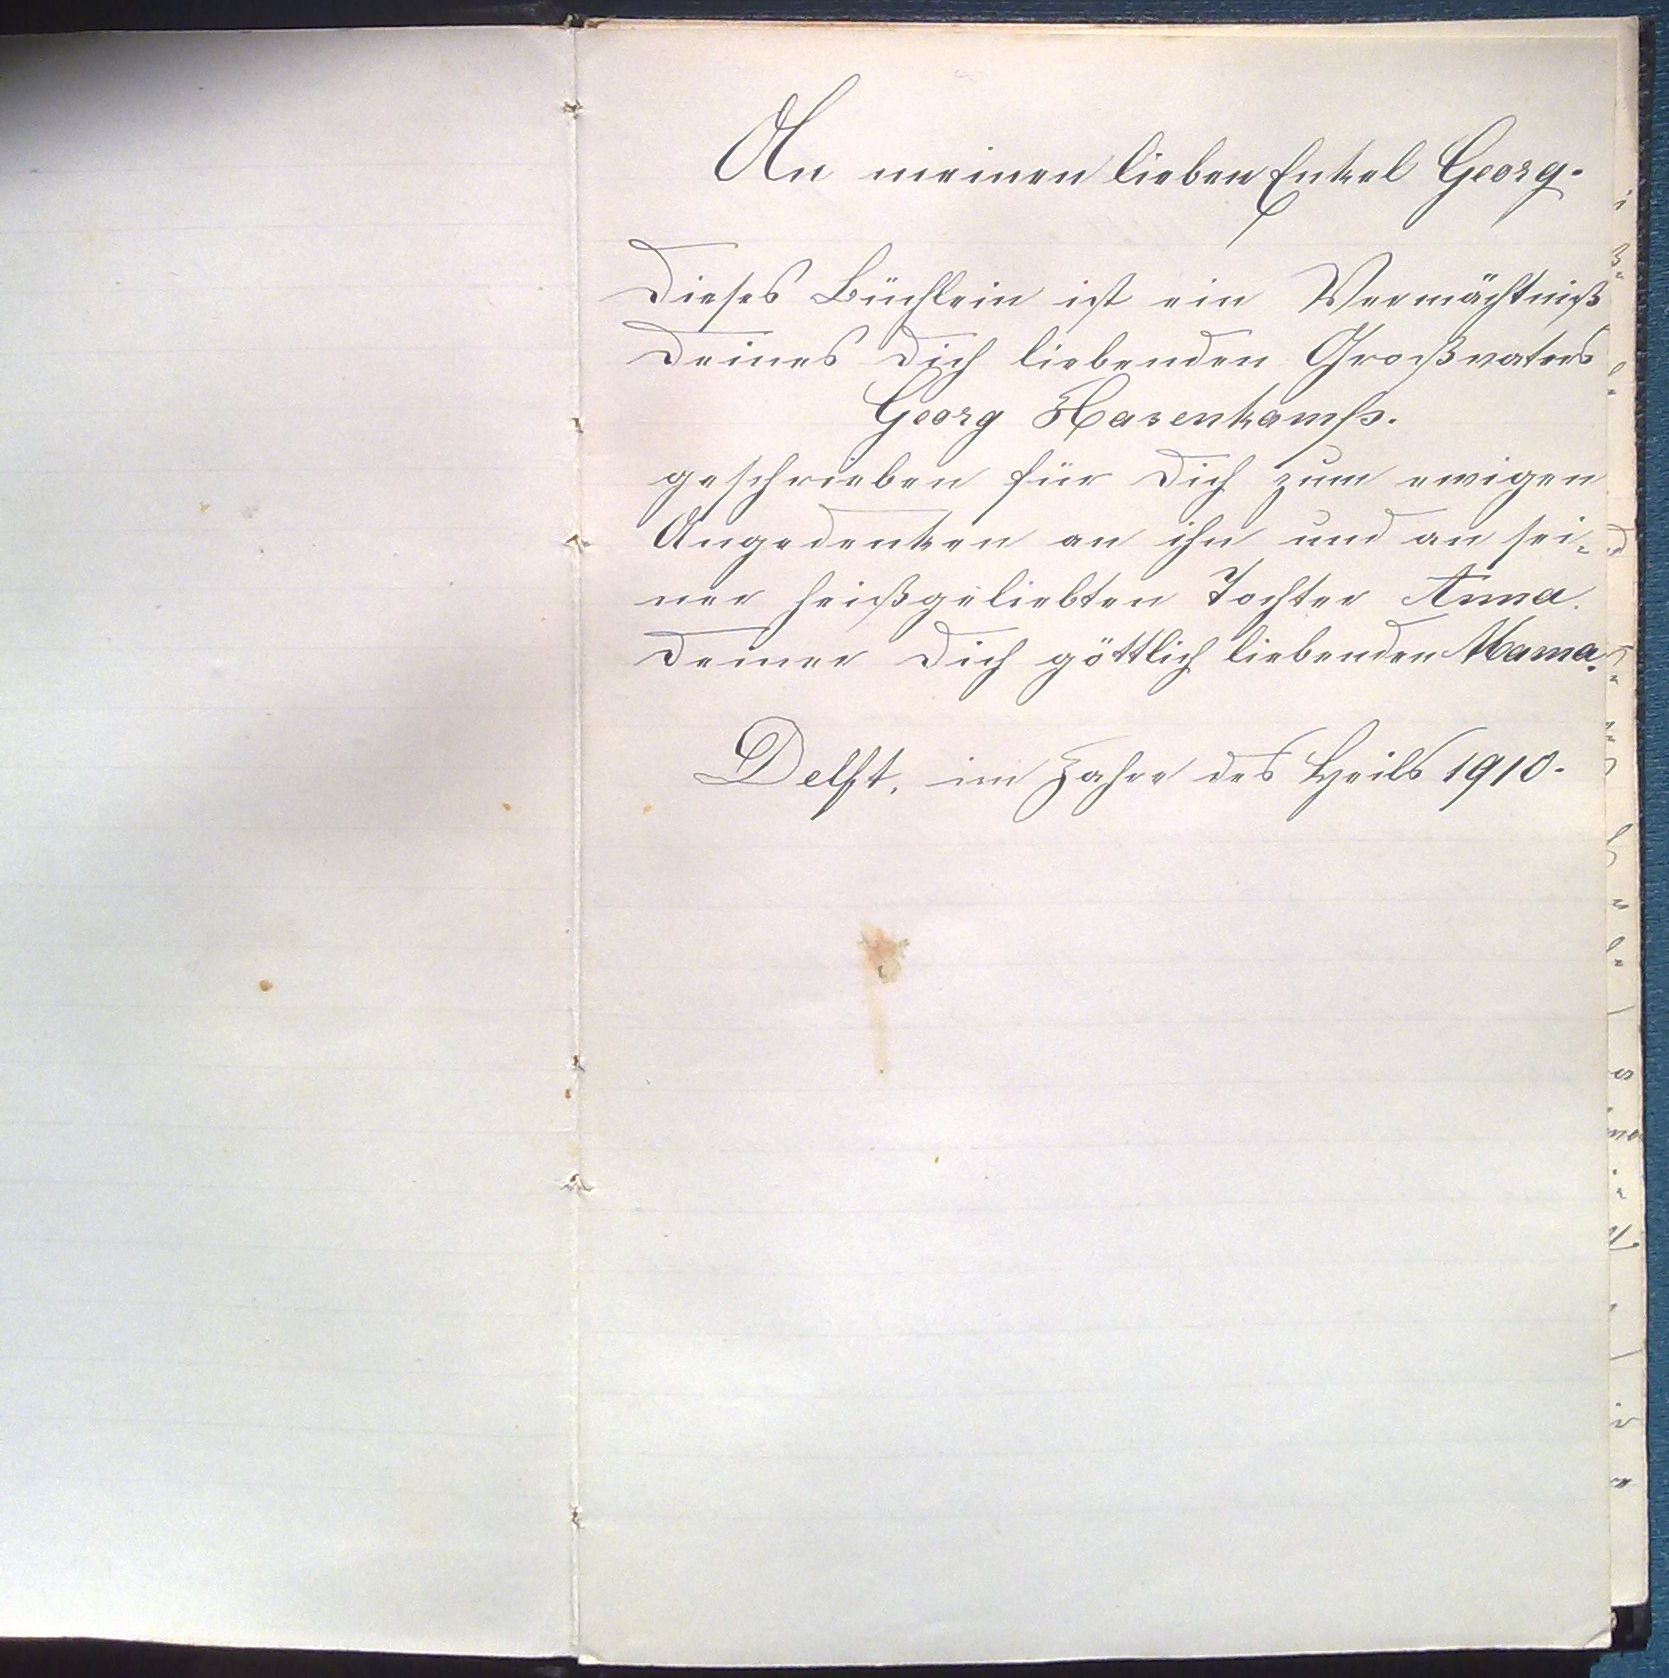 An meinen lieben Enkel Georg.
Dieses Büchlein ist ein Vermächtniß
Deines Dich liebenden Großvaters
Georg Hasenkamp.
geschrieben für Dich zum ewigen
Angedenken an ihn und an sei-
ner heißgeliebten Tochter Anna.
Deiner Dich göttlich liebenden Mama.
Delft, im Jahre des Heils 1910.